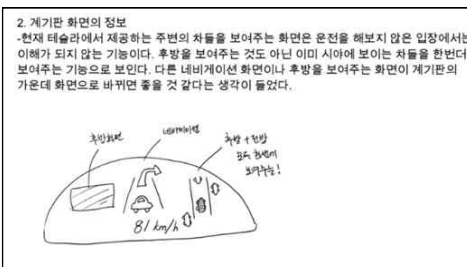 2. 계기판 화면의 정보
-현재 테슬라에서 제공하는 주변의 차들을 보여주는 화면은 운전을 해보지 않은 입장에서는
이해가 되지 않는 기능이다. 후방을 보여주는 것도 아닌 이미 시야에 보이는 차들을 한번더
보여주는 기능으로 보인다. 다른 네비게이션 화면이나 후방을 보여주는 화면이 계기판의
가운데 화면으로 바뀌면 좋을 것 같다는 생각이 들었다.
네비게이션
후방화면
후방 + 전방
모두 한번에
보여주는!
81 km/h